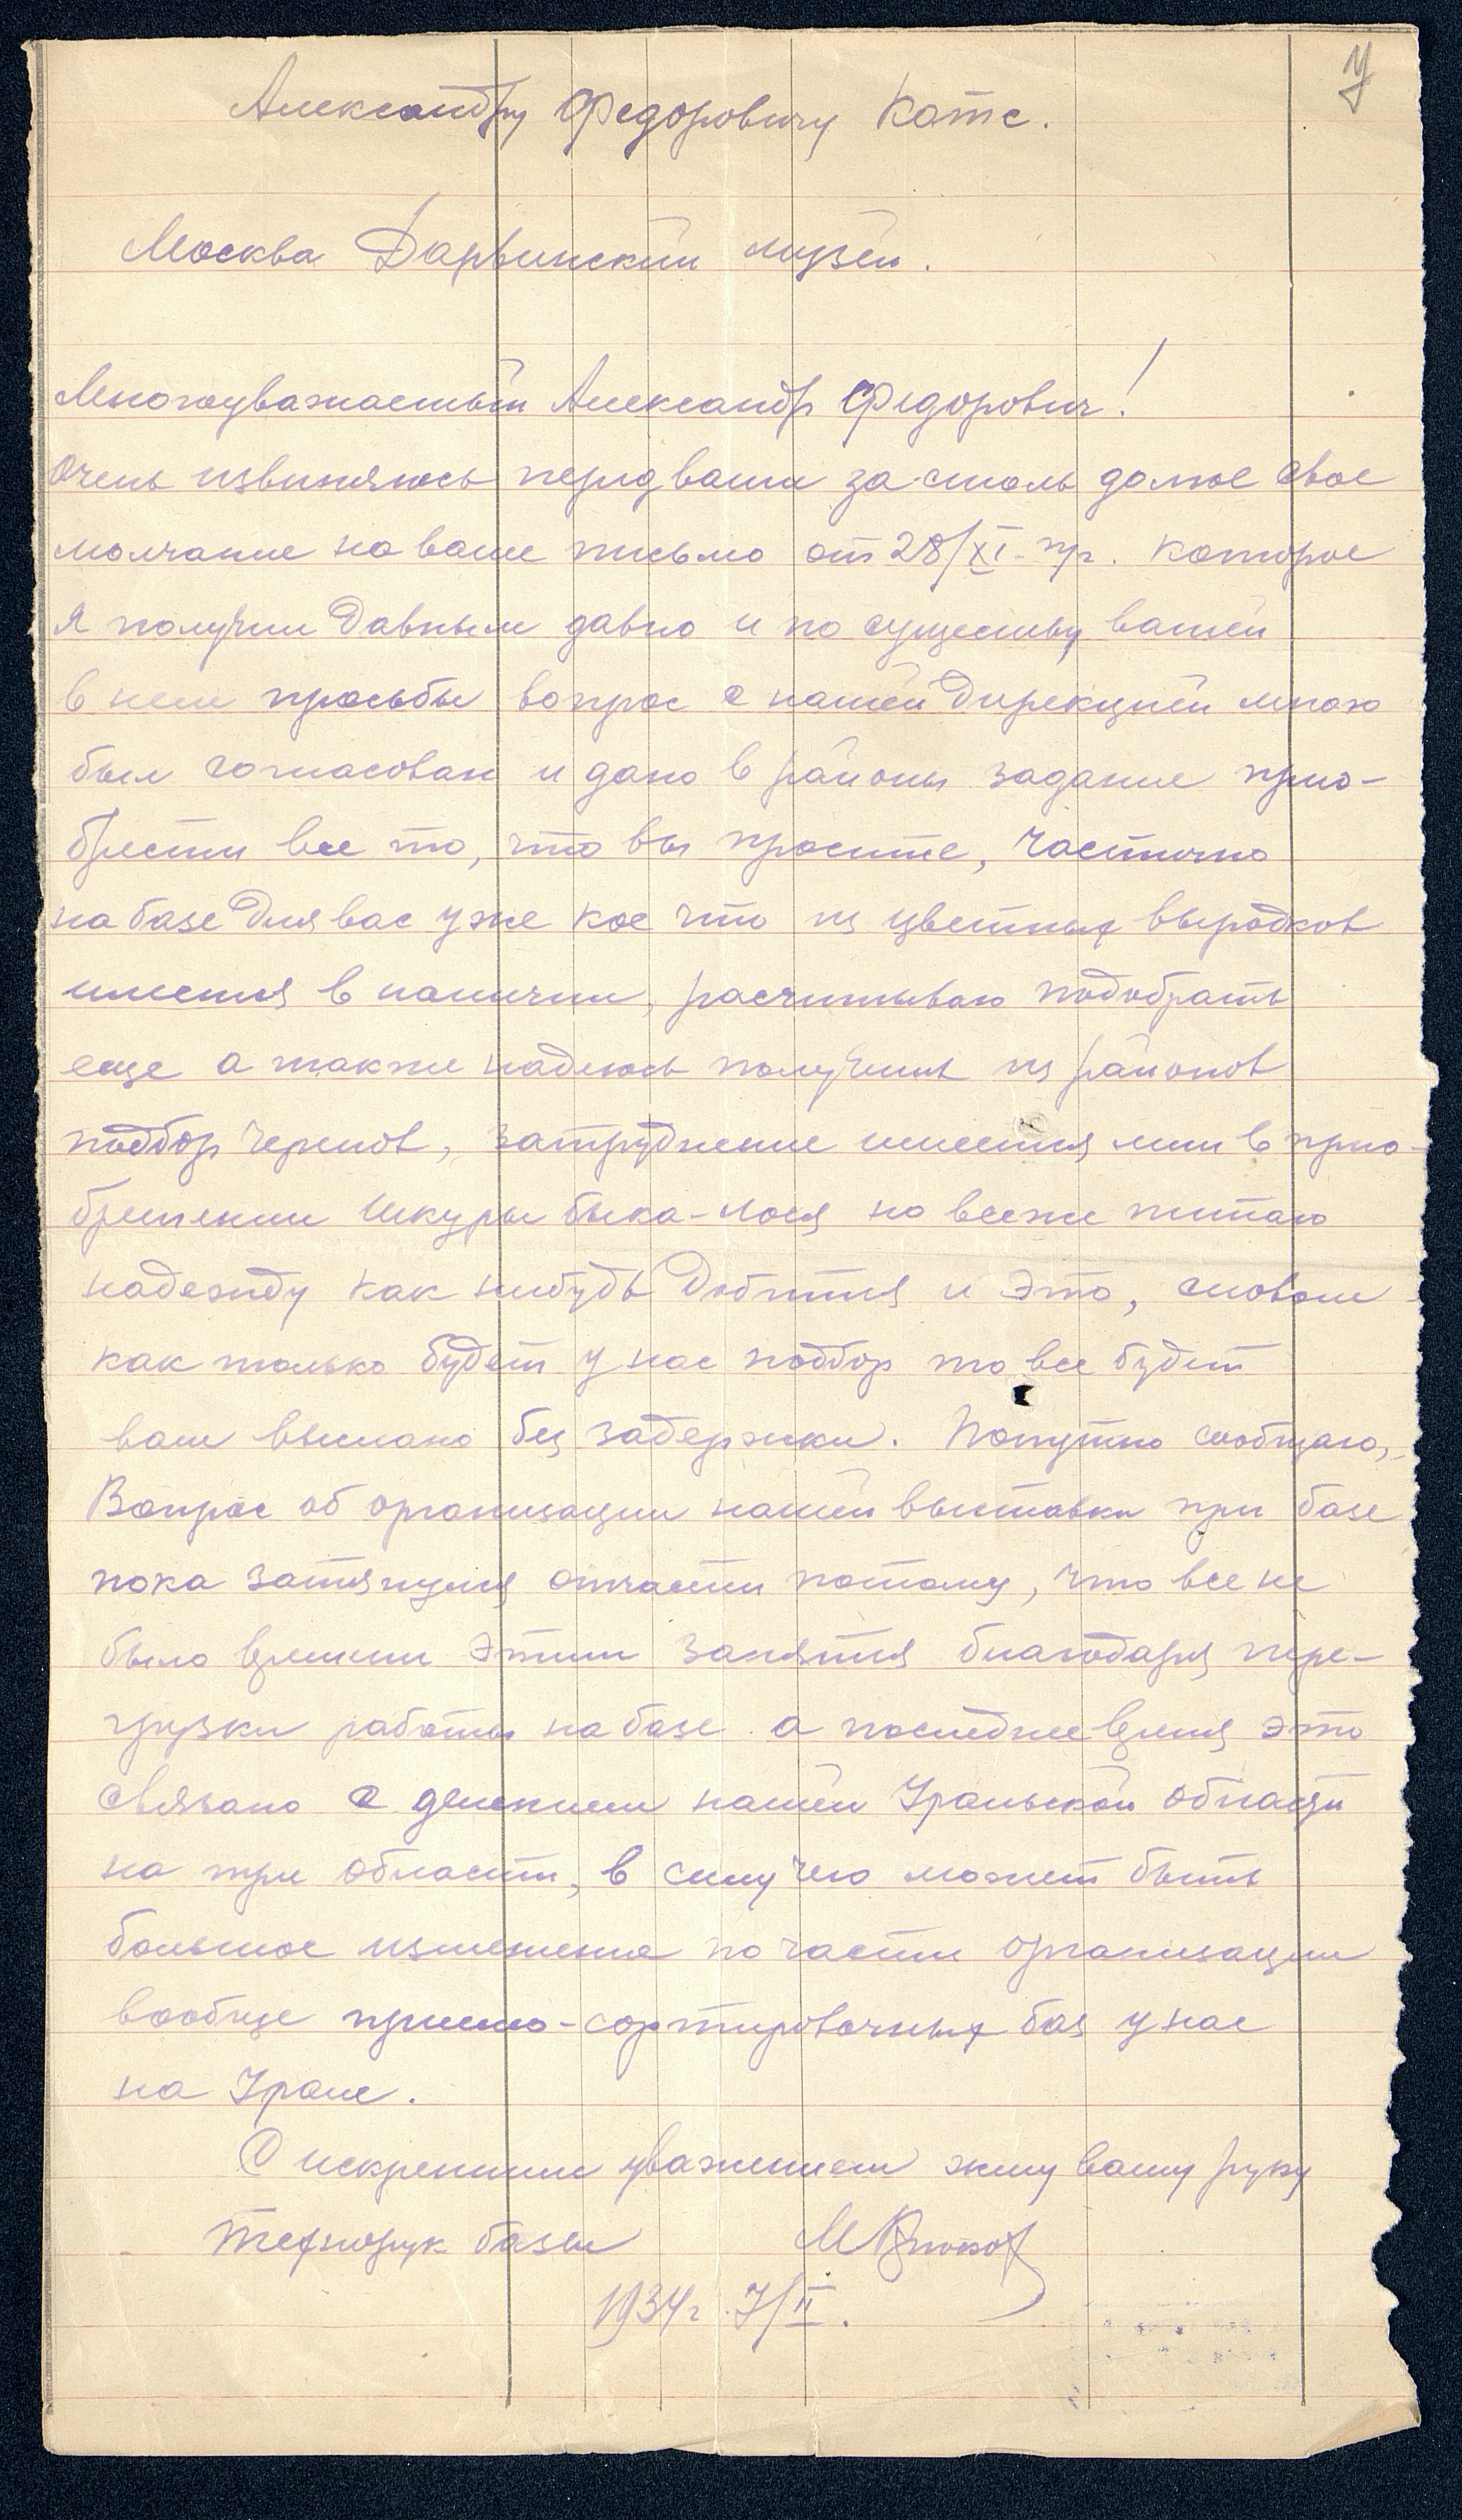 У
Александру Федоровичу Котс.
Москва Дарвинский музей.
Многоуважаемый Александр Федорович!
Очень извиняюсь перед вами за столь долгое свое
молчание на ваше письмо от 28/XI-пр. которое
я получил давным давно и по существу вашей
в нем просьбы вопрос с нашей Дирекцией мною
был согласован и дано в районы задание прио-
брести все то, что вы просите, частично
на базе для вас уже кое что из цветных выродков
имеется в наличии, расчитываю подобрать
еще а также надеюсь получить из районов
подбор черепов, затруднение имеется лиш в прио-
бретении шкуры быка-лося но всеже питаю
надежду как нибудь добится и это, словом
как только будет у нас подбор то все будет
вам выслано без задержки. Попутно сообщаю,
Вопрос об организации нашей выставки при базе
пока затянулся отчасти потому, что все не
было времени этим занятся благодаря пере-
грузки работы на базе а последнее время это
связано с делением нашей Уральской области
на три области, в силу чего может быть
большое изменение по части организации
вообще приемо-сортировочных баз у нас
на Урале.
С искренним уважением жму вашу руку
Технорук базы
1934г. 7/II.